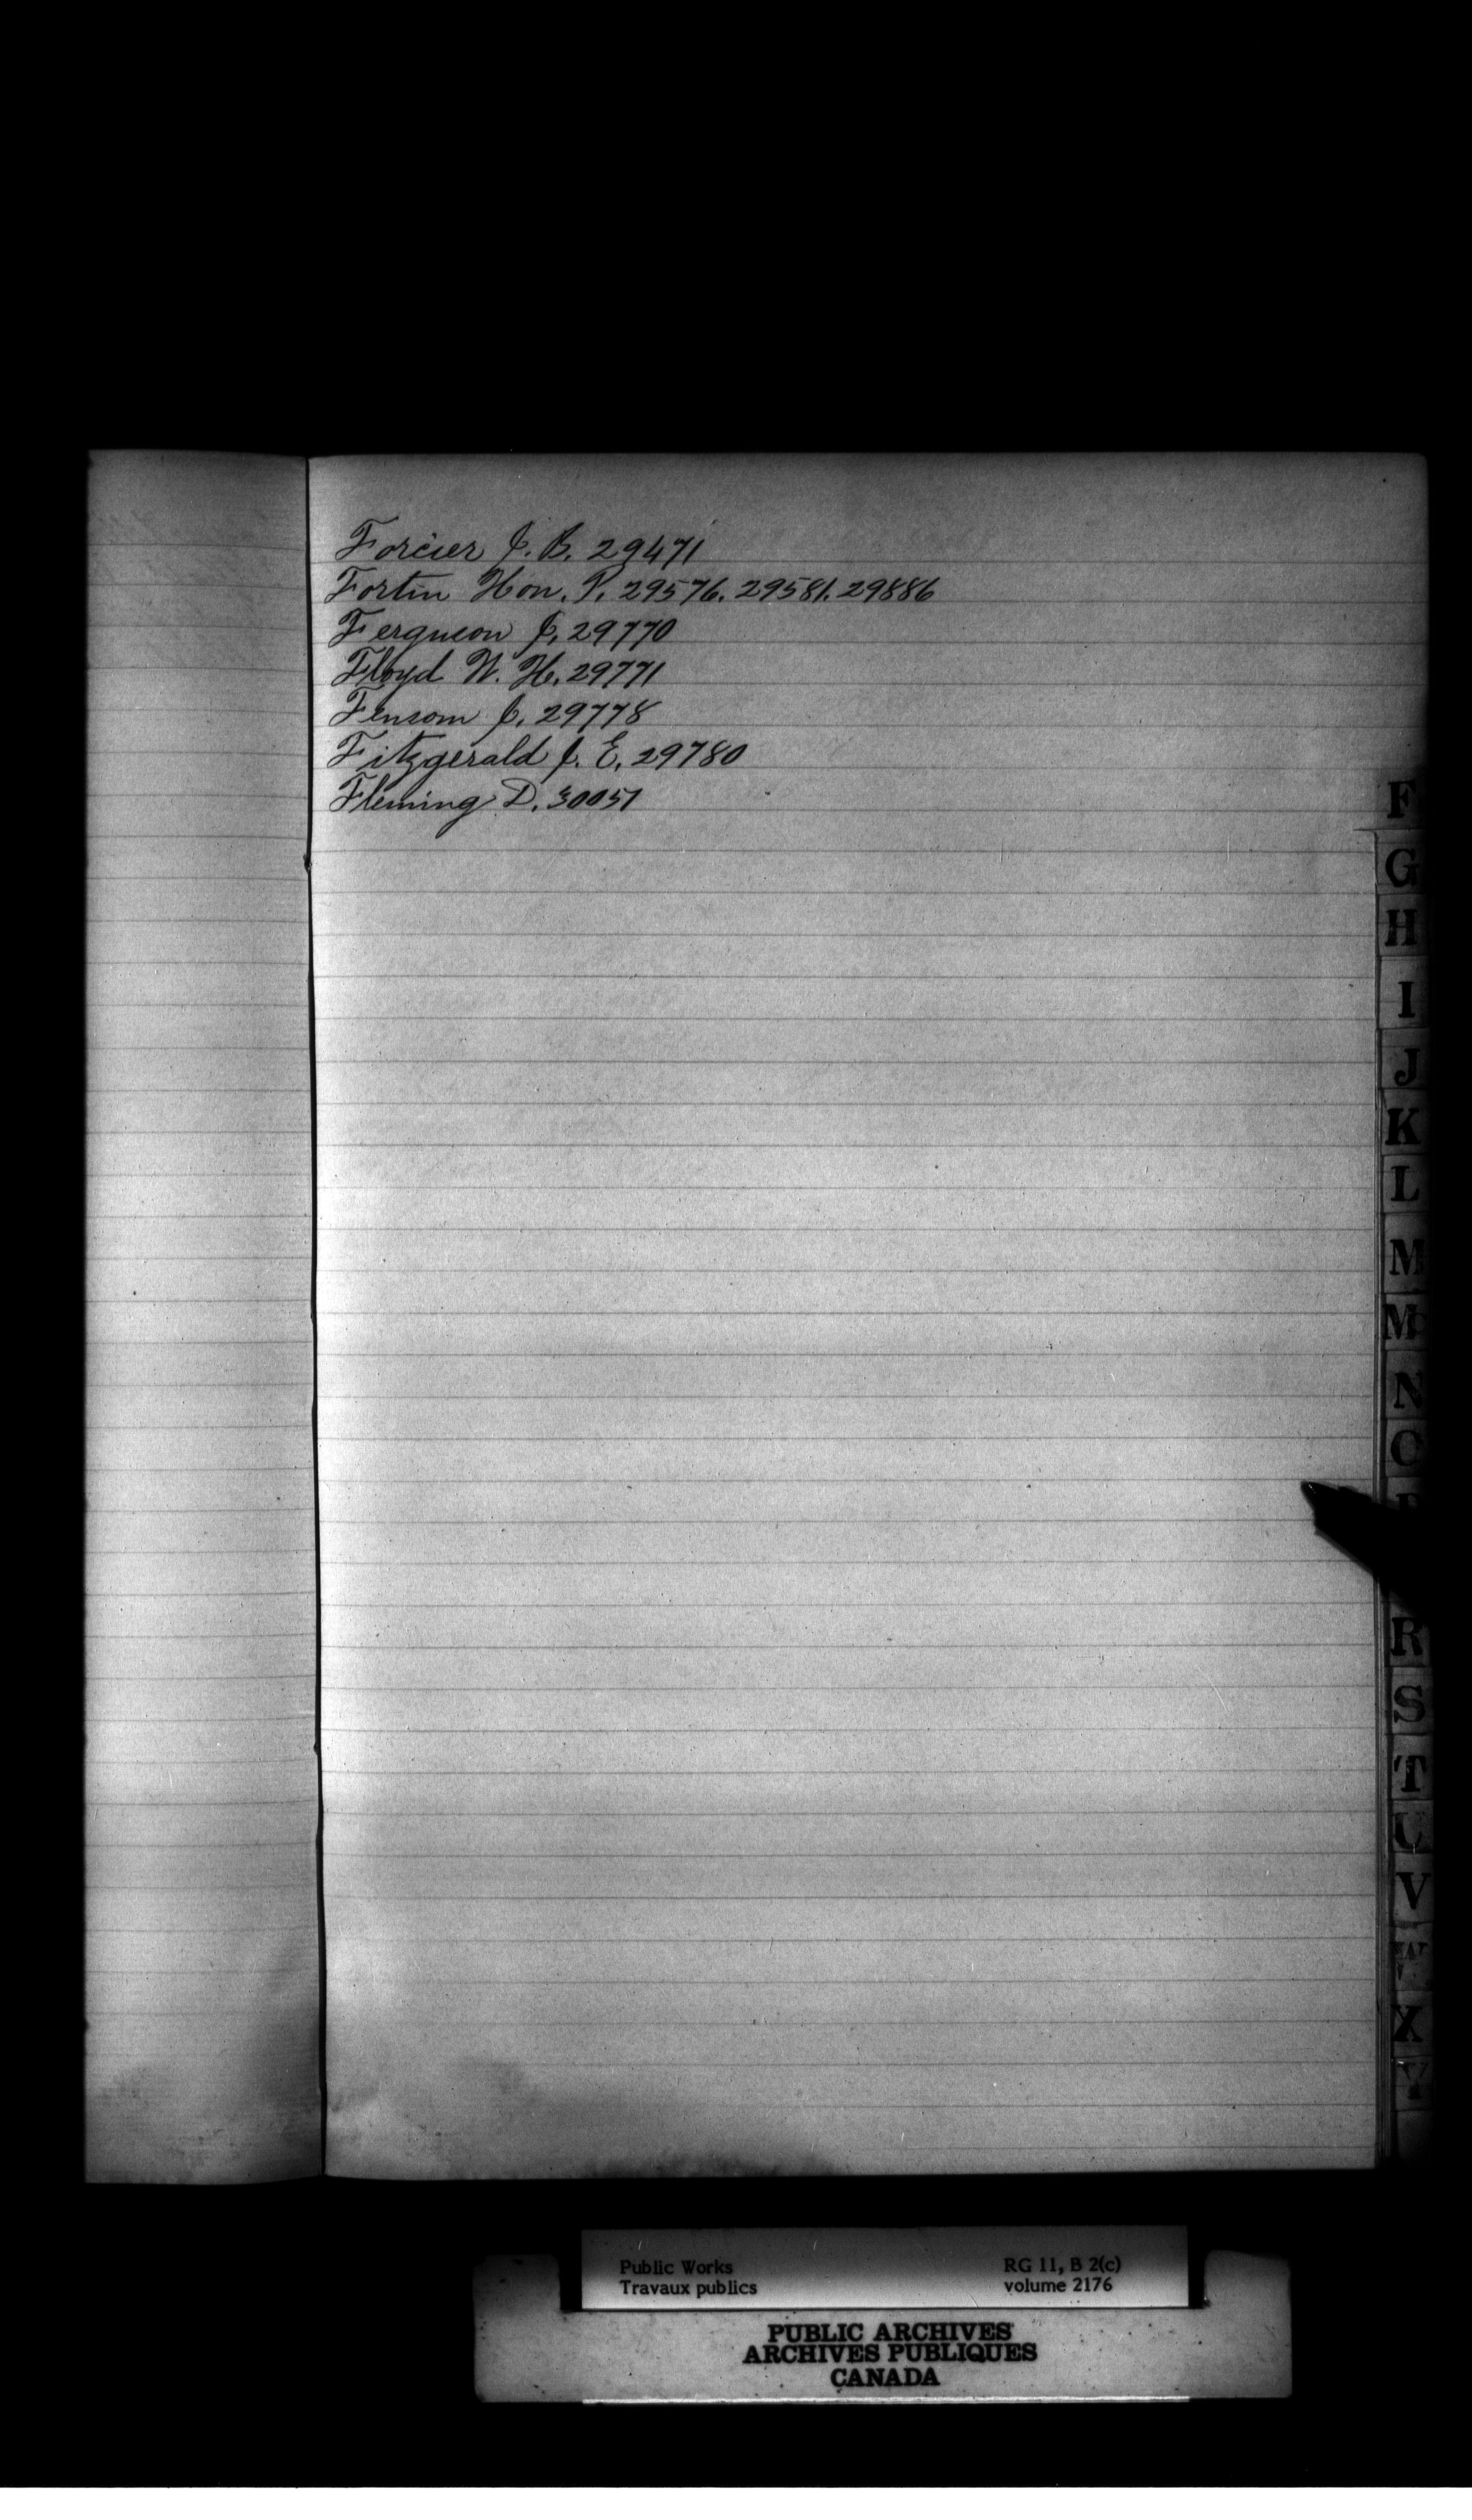 Forcier J. B. 29471
Fortin Hon. P. 29576. 29581. 29886
Ferguson J. 29770
Floyd W. H. 29771
Fensom J. 29778
Fitzgerald J. E. 29780
Fleming D. 30051
F
G
H
I
J
K
L
M
Mc
N
O
P
R
S
T
U
V
W
X
Y
Public Works
Travaux publics
RG 11, B 2(c)
volume 2176
PUBLIC ARCHIVES
ARCHIVES PUBLIQUES
CANADA